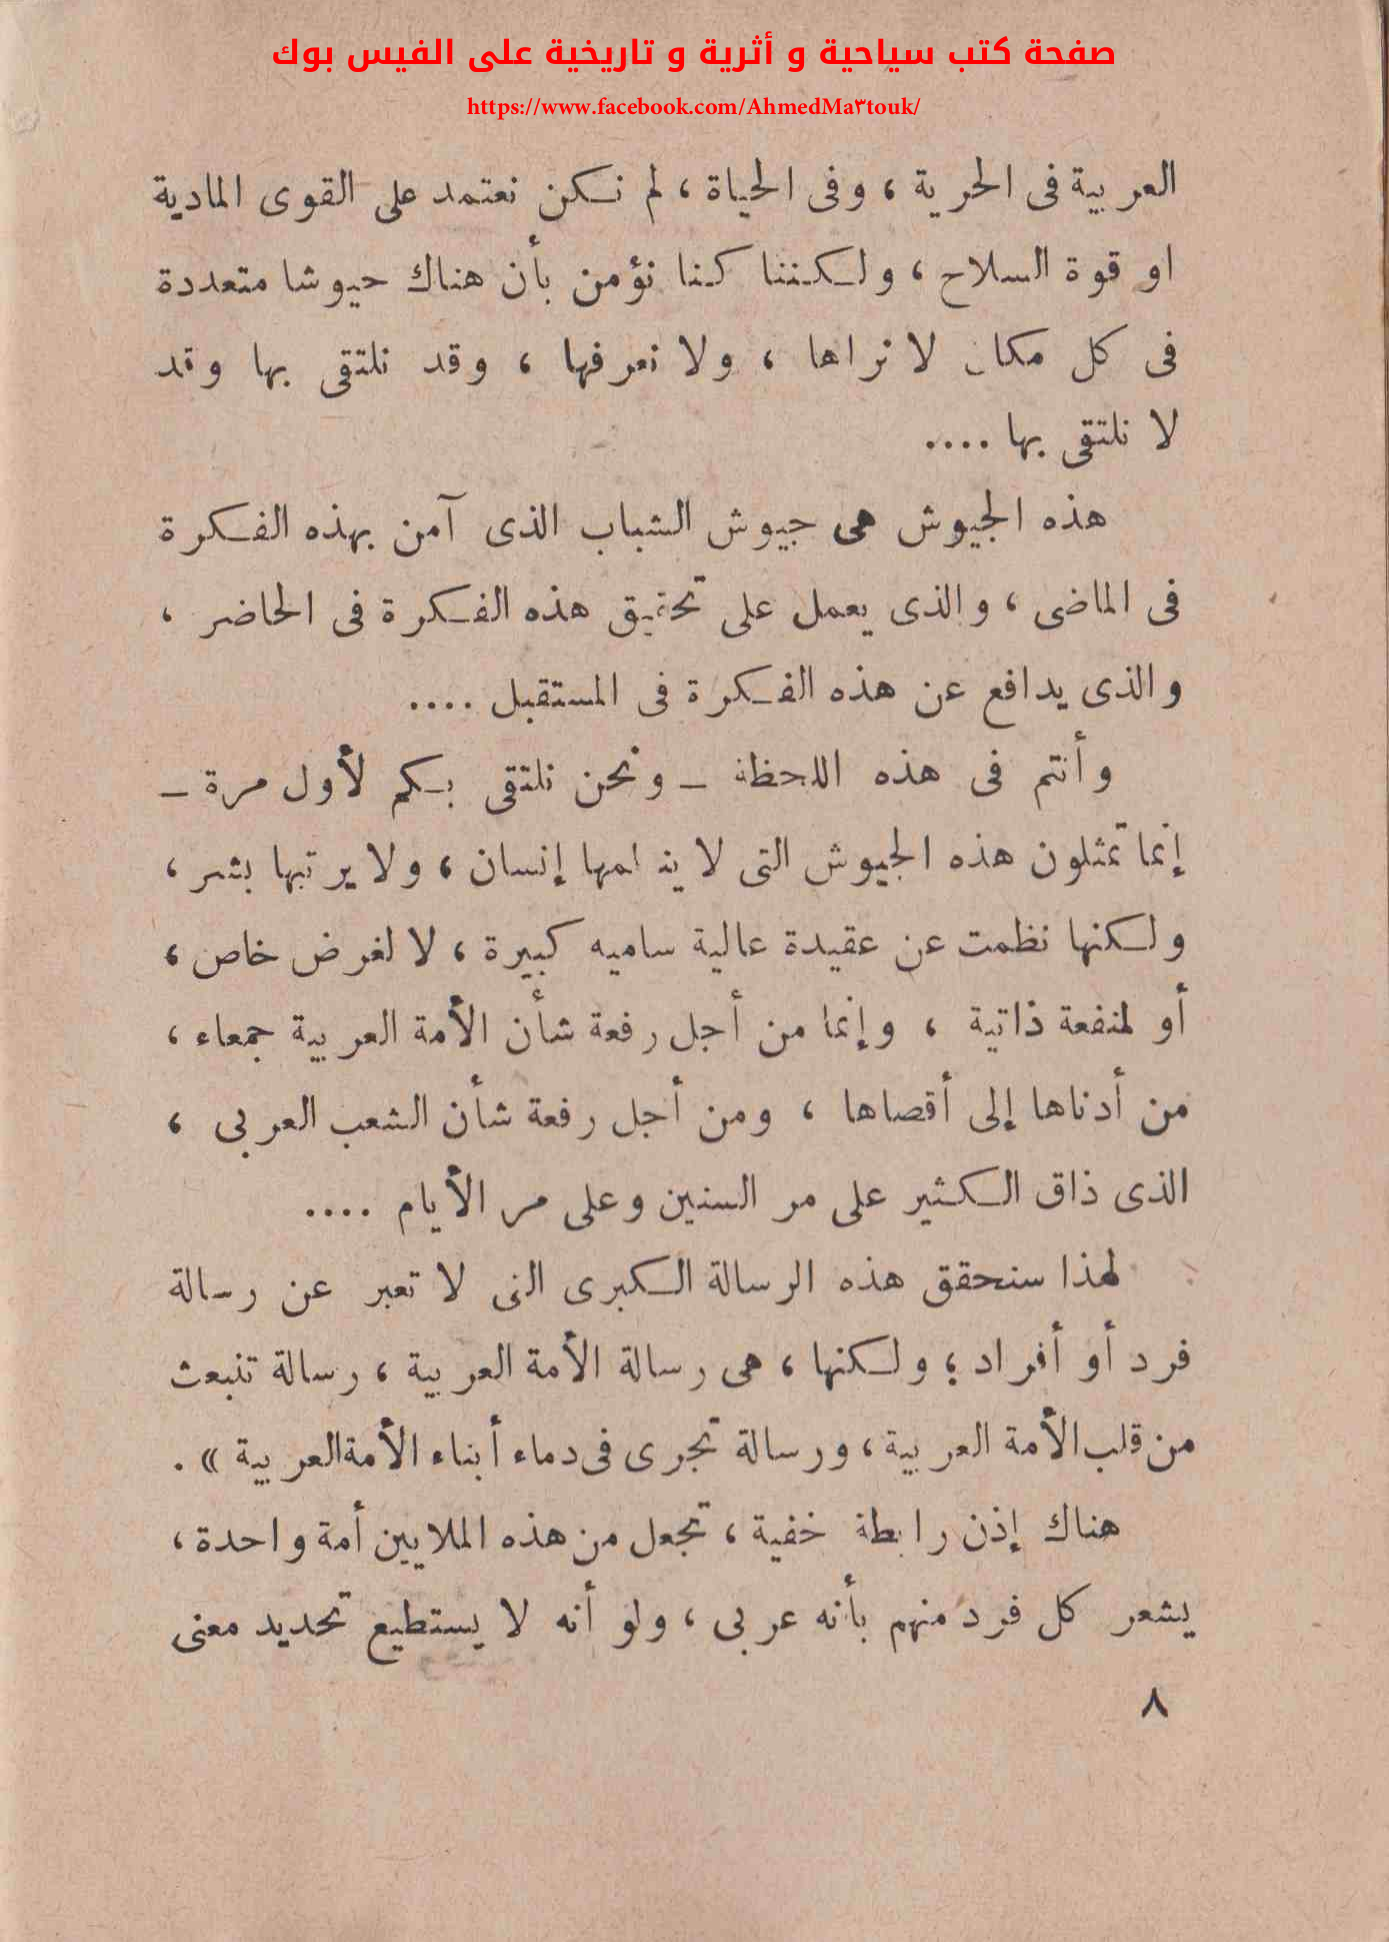 صفحة كتب سياحية و أثرية و تاريخية على الفيس بوك
https://www.facebook.com/AhmedMa٣touk/
العربية فى الحرية ، وفى الحياة ، لم نكن نعتمد على القوى المادية
او قوة السلاح ، ولكننا كنا نؤمن بأن هناك حيوشا متعددة
فى كل مكان لا نراها ، ولا نعرفها ، وقد نلتقى بها وقد
لا نلتقى بها ....
هذه الجيوش هى جيوش الشباب الذى آمن بهذه الفكرة
فى الماضى ، والذى يعمل على تحقيق هذه الفكرة فى الحاضر ،
والذى يدافع عن هذه الفكرة فى المستقبل ....
وأنتم فى هذه اللحظة ــ ونحن نلتقى بكم لأول مرة ــ
إنما تمثلون هذه الجيوش التى لا ينظمها إنسان ، ولا يرتبها بشر ،
ولكنها نظمت عن عقيدة عالية ساميه كبيرة ، لا لغرض خاص ،
أو لمنفعة ذاتية ، وإنما من أجل رفعة شأن الأمة العربية جمعاء ،
من أدناها إلى أقصاها ، ومن أجل رفعة شأن الشعب العربى ،
الذى ذاق الكثير على مر السنين وعلى مر الأيام ....
لهذا سنحقق هذه الرسالة الكبرى التى لا تعبر عن رسالة
فرد أو أفراد ؛ ولكنها ، هى رسالة الأمة العربية ، رسالة تنبعث
من قلب الأمة العربية ، ورسالة تجرى فى دماء أبناء الأمة العربية » .
هناك إذن رابطة خفية ، تجعل من هذه الملايين أمة واحدة ،
يشعر كل فرد منهم بأنه عربى ، ولو أنه لا يستطيع تحديد معنى
٨